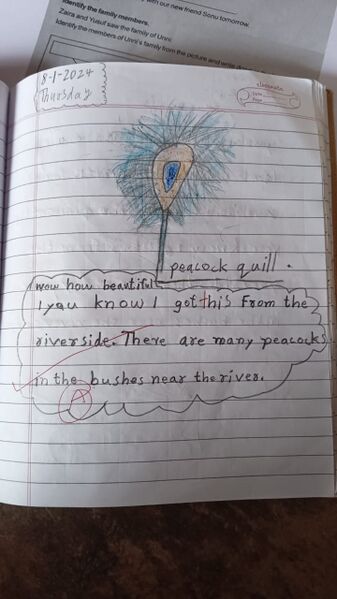 with our new friend Sonu tomorrow.
Identify the family members.
Zaira and Yusuf saw the family of Unni.
Identify the members of Unni's family from the picture and write
8-1-2024
Thursday
classmate
Date
Page
peacock quill.
wow how beautiful
1 you know I got this From the
riverside. There are many peacocks
in the bushes near the river.
A